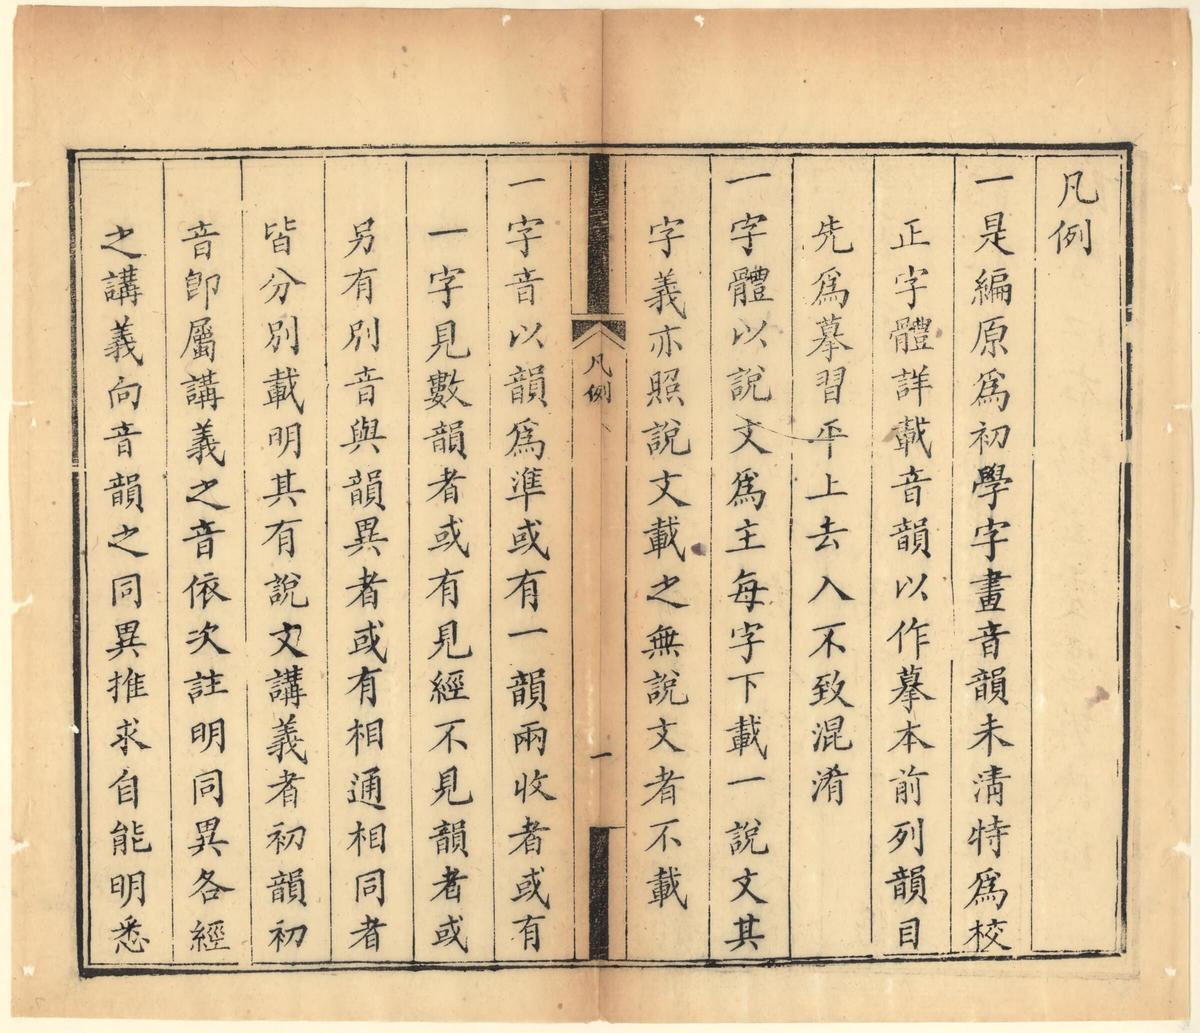 凡例
一是編原爲初學字畫音韻未清特爲校
正字體詳載音韻以作摹本前列韻目
先爲摹習平上去入不致混淆
一字體以說文爲主每字下載一說文其
字義亦照說文載之無說文者不載
凡例
一
一字音以韻爲準或有一韻兩收者或有
一字見數韻者或有見經不見韻者或
另有別音與韻異者或有相通相同者
皆分別載明其有說文講義者初韻初
音卽屬講義之音依次註明同異各經
之講義向音韻之同異推求自能明悉